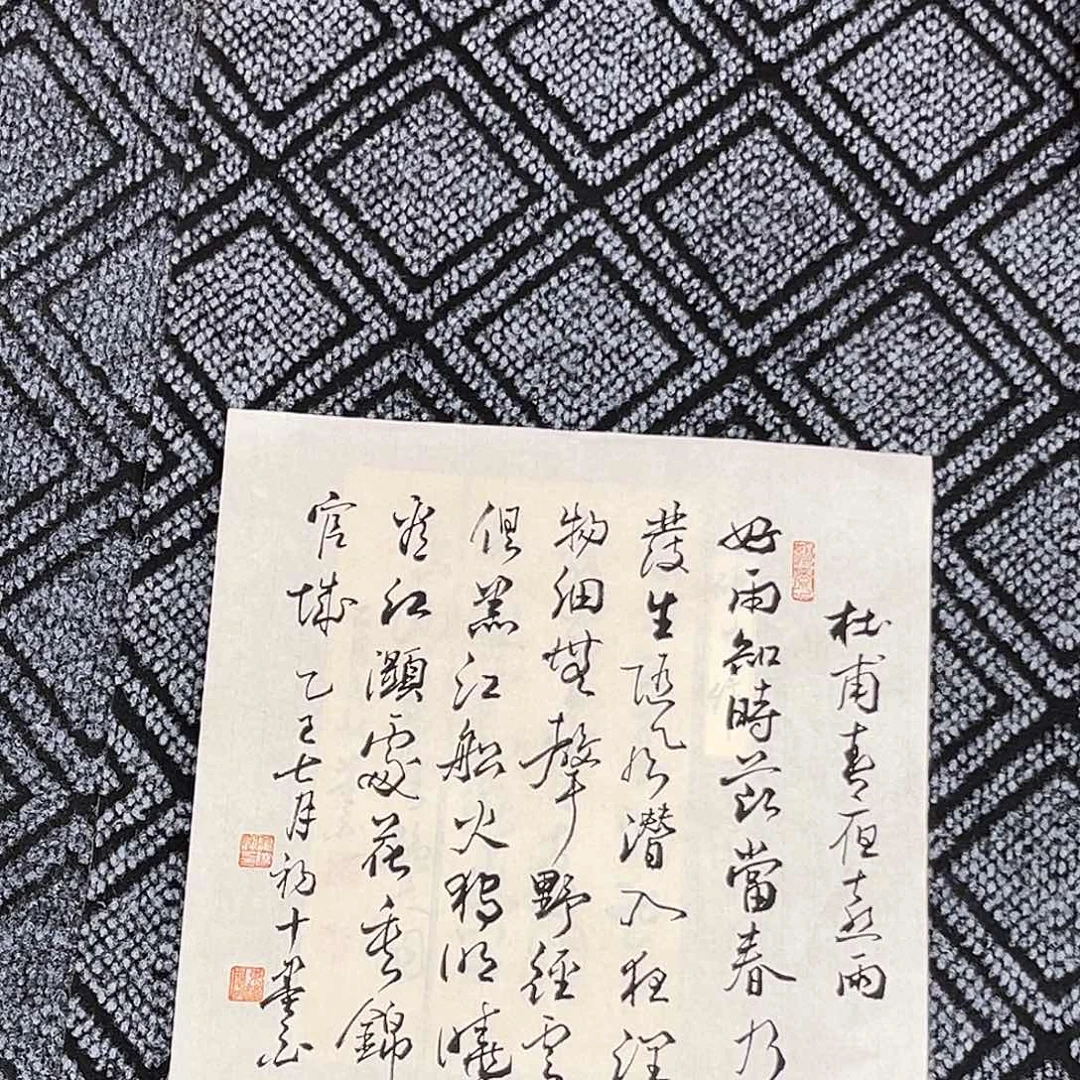 杜甫春夜喜雨
好雨知時節當春乃
發生随风潜入夜潤
物細無聲野徑雲
俱黑江船火獨明曉
看紅濕處花重錦
官城 乙巳七月初十